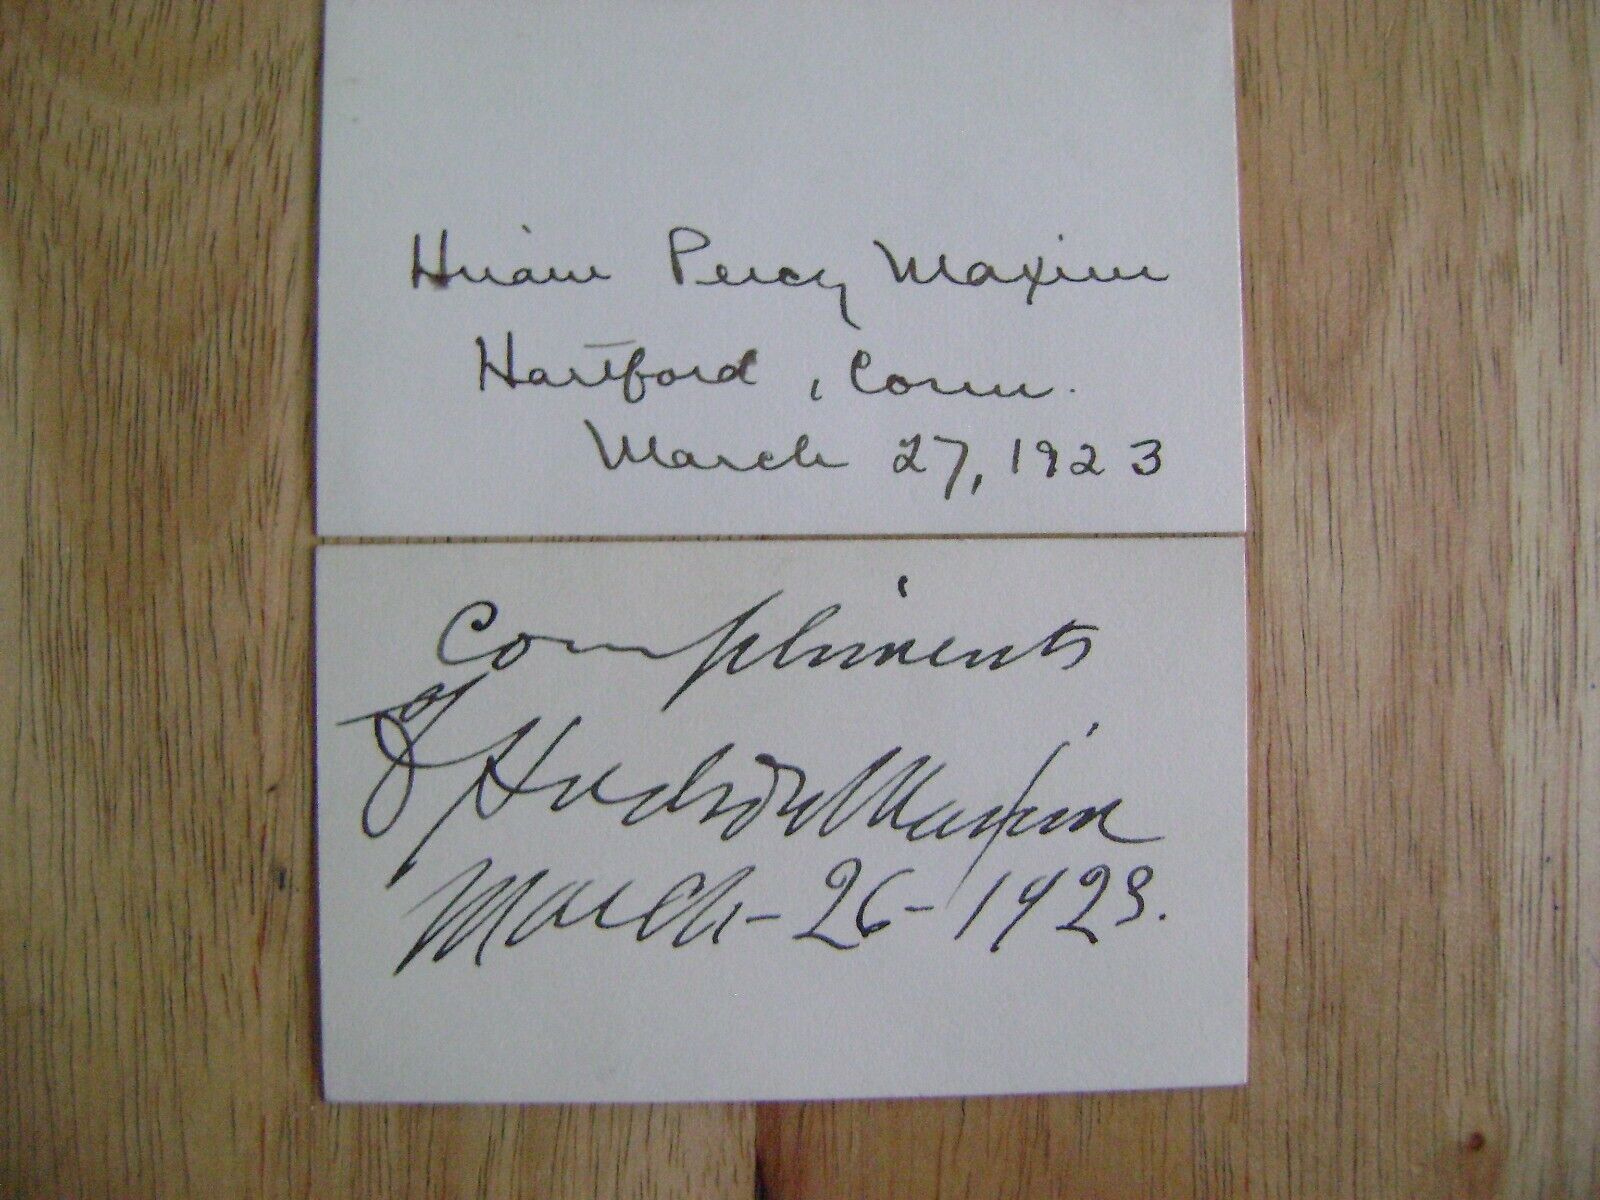 Hiram Percy Maxim
Hartford, Conn.
March 27, 1923
Compliments
of Hudson Maxim
March-26-1923.